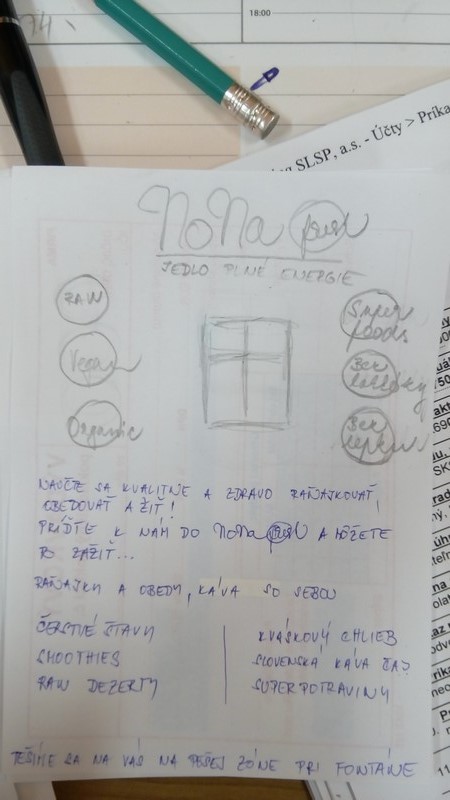 74
18:00
SLSP, a.s. - Účty > Príka
NoNa
JEDLO PLNÉ ENERGIE
RAW
Vegan
Organic
Super foods
Bez laktózy
Bez lepku
NAUČTE SA KVALITNE A ZDRAVO RAŇAJKOVAŤ,
OBEDOVAŤ A ŽIŤ!
PRÍĎTE K NÁM DO NoNa A MÔŽETE
TO ZAŽIŤ...
RAŇAJKY A OBEDY, KÁVA SO SEBOU
ČERSTVÉ ŠŤAVY
SMOOTHIES
RAW DEZERTY
KVÁSKOVÝ CHLIEB
SLOVENSKÁ KÁVA ČAJ
SUPERPOTRAVINY
TEŠÍME SA NA VÁS NA PEŠEJ ZÓNE PRI FONTÁNE